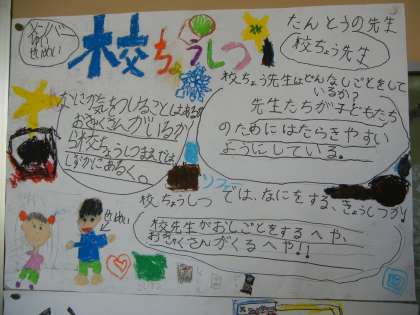 校ちょうしつ
たんとうの先生
校ちょう先生
校ちょう先生はどんなしごとをして
いるか?
先生たちが子どもたち
のためにはたらきやすい
ようにしている。
なにか気をつけることはあるか
おきゃくさんがいるか
ら校ちょうしつまえでは
しずかにあるく。
校ちょうしつでは、なにをする、きょうしつか!
校先生がおしごとをするへや、
おきゃくさんがくるへや!!
せつめい